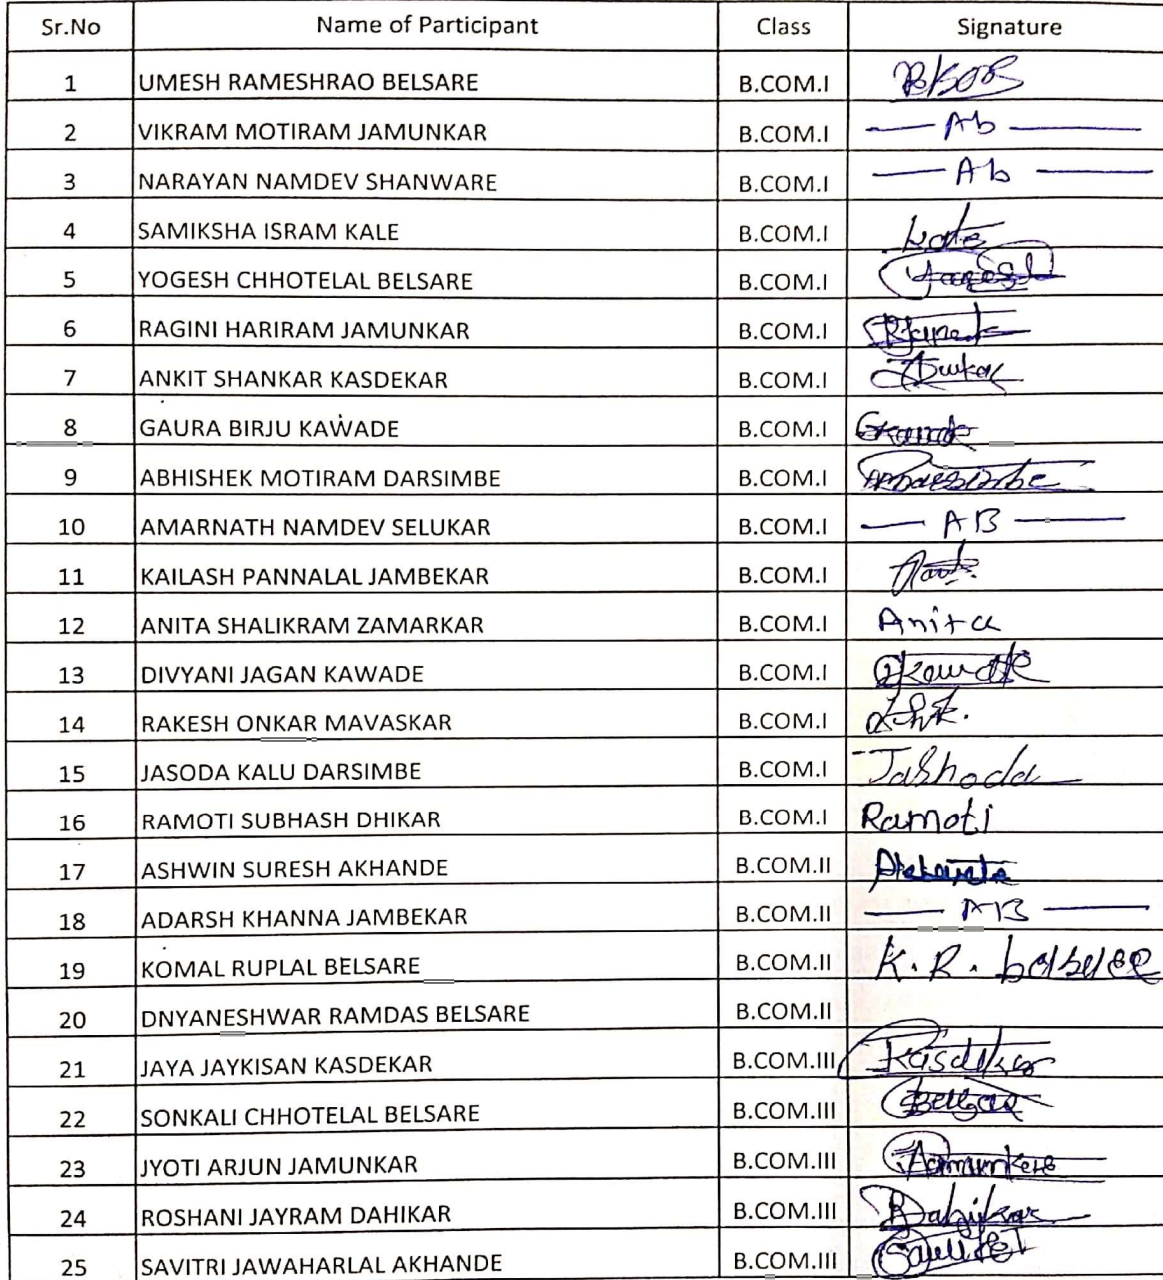 Sr.No Name of Participant Class Signature
1 UMESH RAMESHRAO BELSARE B.COM.I
2 VIKRAM MOTIRAM JAMUNKAR B.COM.I — Ab —
3 NARAYAN NAMDEV SHANWARE B.COM.I — Ab —
4 SAMIKSHA ISRAM KALE B.COM.I
5 YOGESH CHHOTELAL BELSARE B.COM.I
6 RAGINI HARIRAM JAMUNKAR B.COM.I
7 ANKIT SHANKAR KASDEKAR B.COM.I
8 GAURA BIRJU KAWADE B.COM.I
9 ABHISHEK MOTIRAM DARSIMBE B.COM.I
10 AMARNATH NAMDEV SELUKAR B.COM.I — AB —
11 KAILASH PANNALAL JAMBEKAR B.COM.I
12 ANITA SHALIKRAM ZAMARKAR B.COM.I Anita
13 DIVYANI JAGAN KAWADE B.COM.I
14 RAKESH ONKAR MAVASKAR B.COM.I
15 JASODA KALU DARSIMBE B.COM.I Jashoda
16 RAMOTI SUBHASH DHIKAR B.COM.I Ramoti
17 ASHWIN SURESH AKHANDE B.COM.II
18 ADARSH KHANNA JAMBEKAR B.COM.II — AB —
19 KOMAL RUPLAL BELSARE B.COM.II K. R.
20 DNYANESHWAR RAMDAS BELSARE B.COM.II
21 JAYA JAYKISAN KASDEKAR B.COM.III
22 SONKALI CHHOTELAL BELSARE B.COM.III
23 JYOTI ARJUN JAMUNKAR B.COM.III
24 ROSHANI JAYRAM DAHIKAR B.COM.III
25 SAVITRI JAWAHARLAL AKHANDE B.COM.III